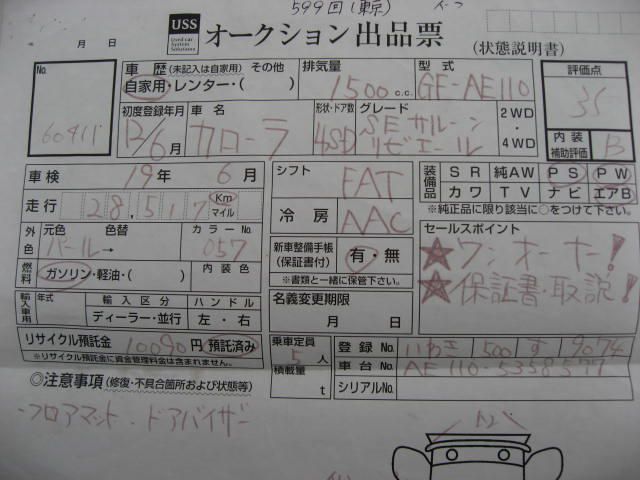 599回(東京)
USS Used car System Solutions オークション出品票
月 日 (状態説明書)
No. 60411
車歴 (未記入は自家用) その他 自家用・レンター・( )
排気量 1500 c.c.
型式 GF-AE110
評価点 3.5
内装補助評価 B
初度登録年月 12/6月
車名 カローラ
形状・ドア数 4SD
グレード SEサルーン リビエール
2WD・4WD
車検 19年 6月
走行 28,517 Km マイル
シフト FAT
冷房 AAC
装備品 SR 純AW PS PW
カワ TV ナビ エアB
※純正品に限り該当に○をつけて下さい。
外色 元色 色替 カラーNo.
パール→ 057
燃料 ガソリン・軽油・( ) 内装色
新車整備手帳(保証書付) 有・無
※書類と一緒に保管下さい。
セールスポイント
★ワンオーナー!
★保証書・取説!
輸入車用 年式 輸入区分 ハンドル
ディーラー・並行 左・右
名義変更期限
月 日
リサイクル預託金 10090円 預託済み
※リサイクル預託金に資金管理料金は含まれません。
乗車定員 5人
積載量 t
登録No. いわき 500 す 9074
車台No. AE110-5358577
シリアルNo.
◎注意事項(修復・不具合箇所および状態等)
・フロアマット・ドアバイザー
A2